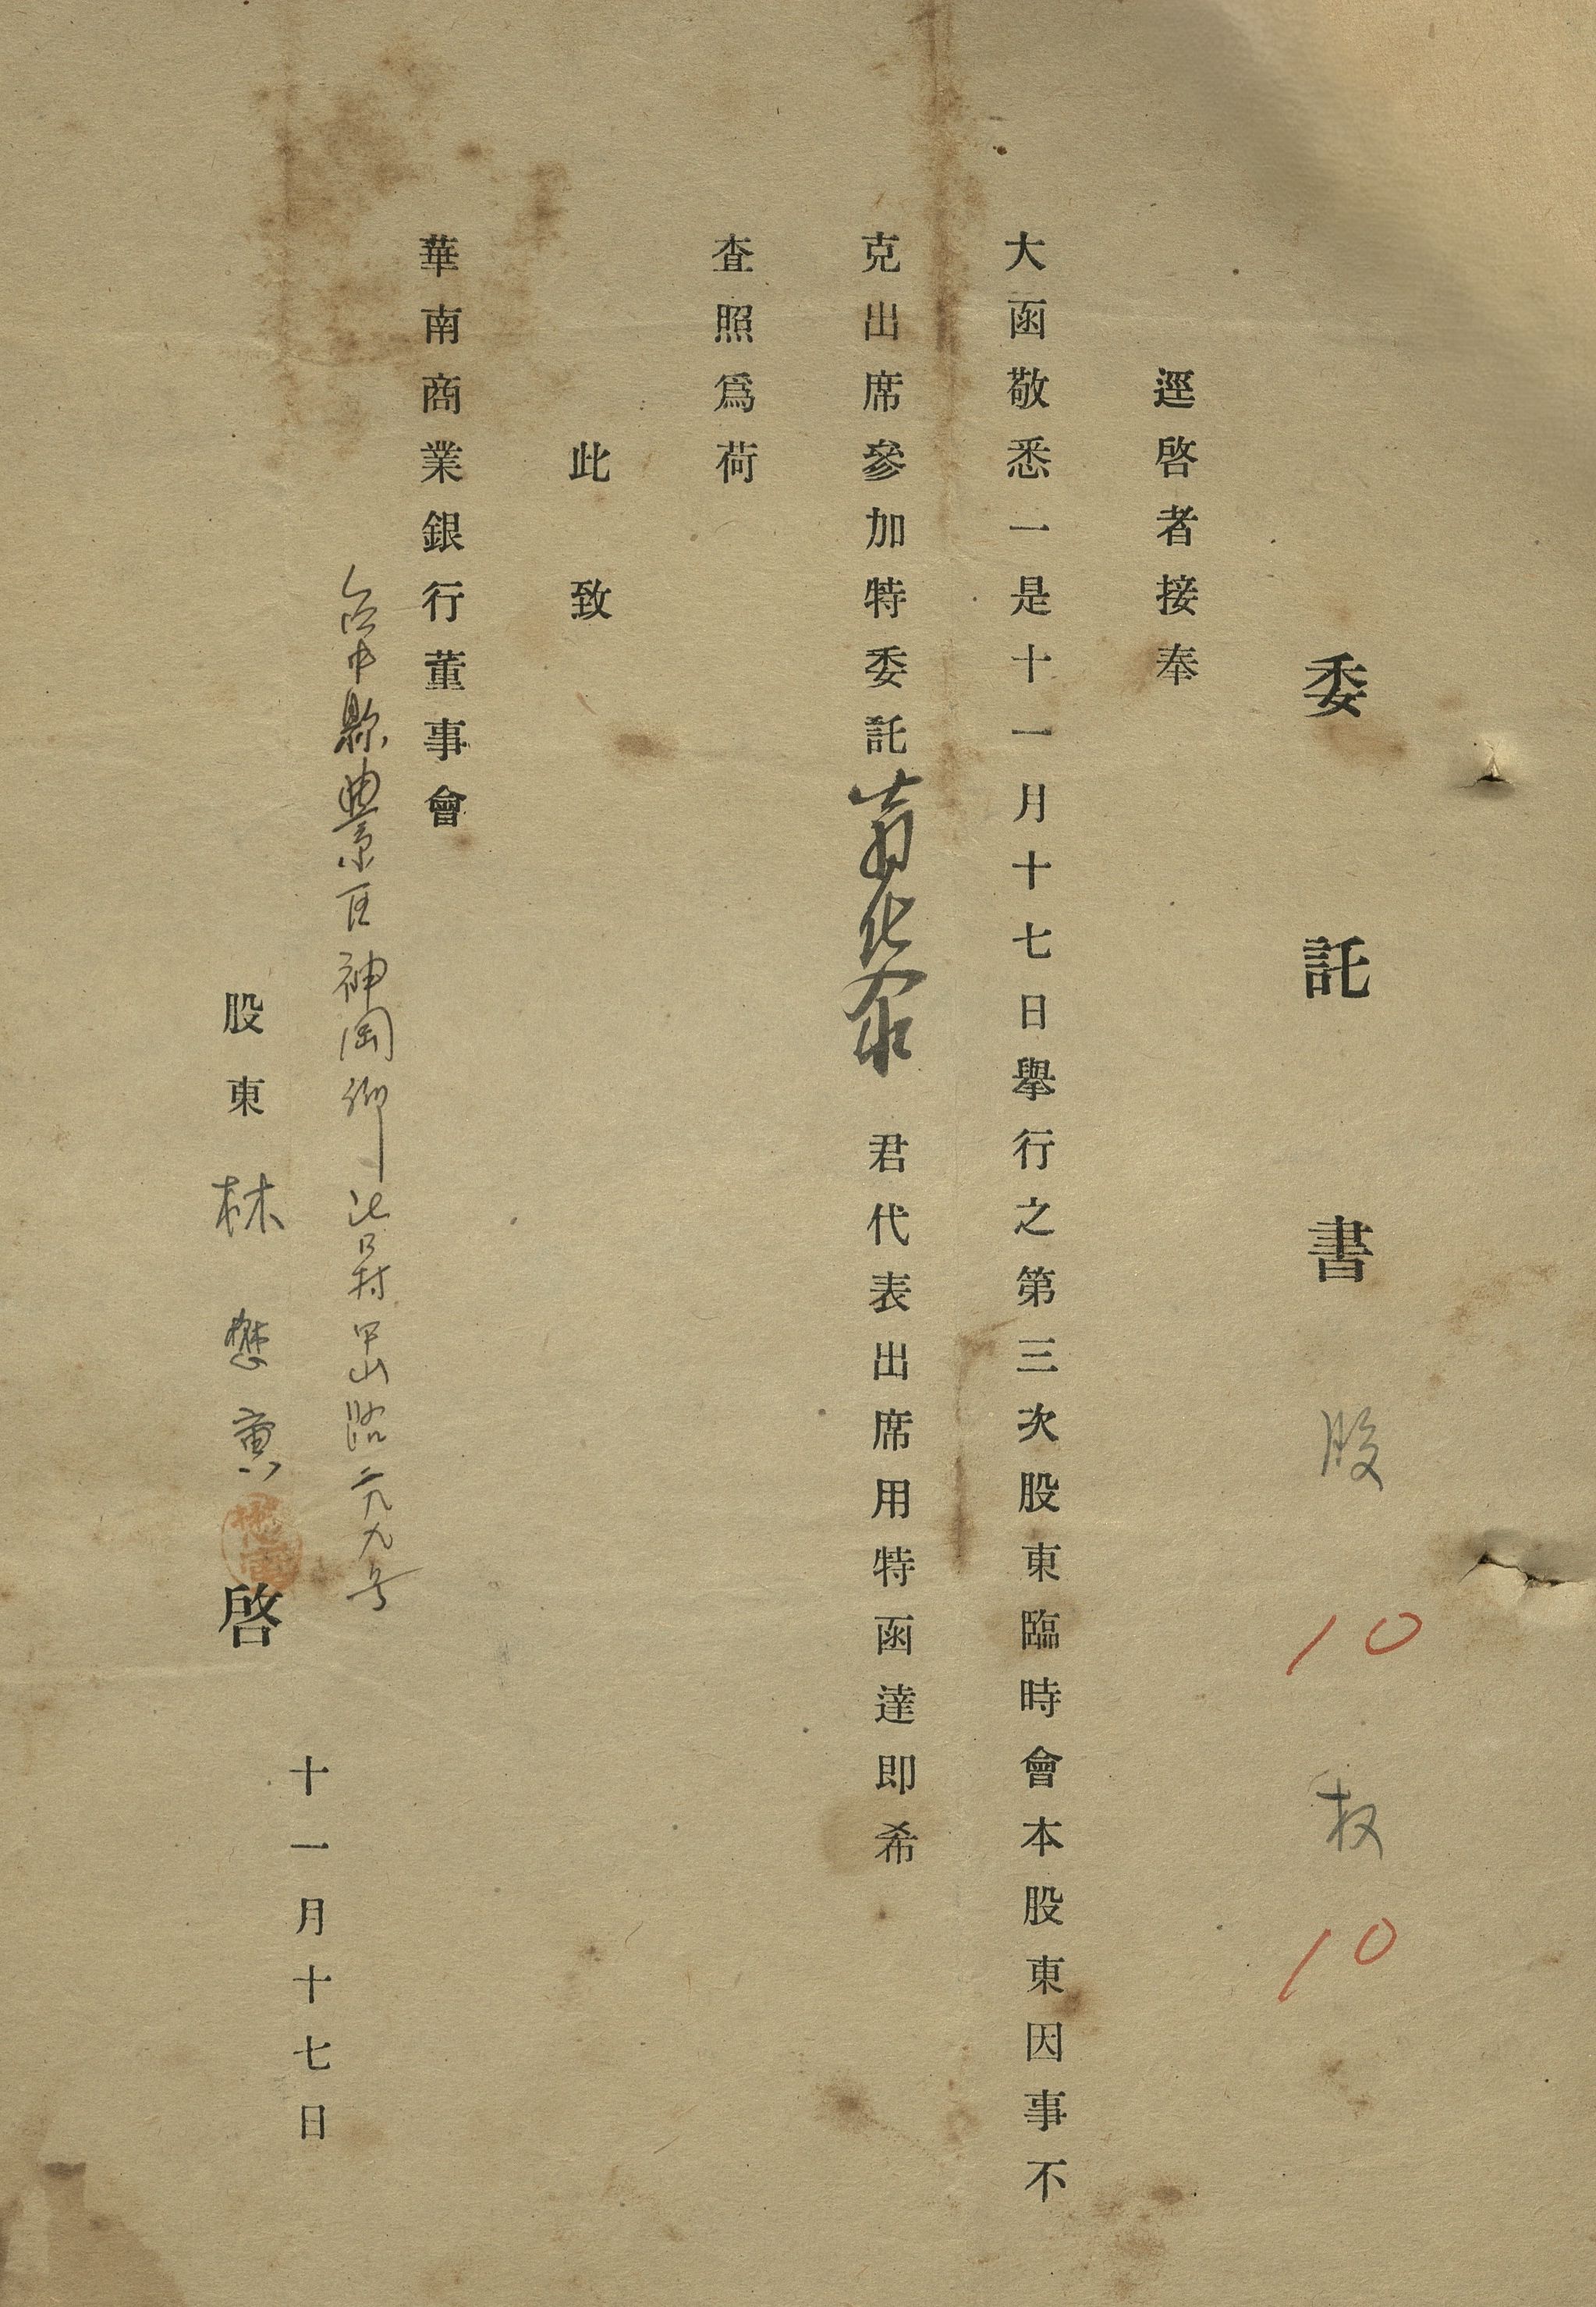 委託書 股 10 权 10
逕啓者接奉
大函敬悉一是十一月十七日舉行之第三次股東臨時會本股東因事不
克出席參加特委託 君代表出席用特函達即希
査照爲荷
此致
華南商業銀行董事會
台中縣豐原区神岡鄉 二九九号
十一月十七日
股東 林懋寅 啓